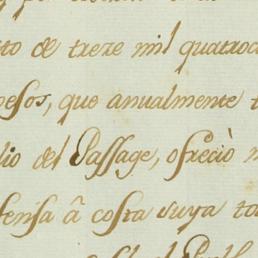 to de treze mil quatroc
pesos, que anualmente t
lio del Passage, ofreciò
fensa â costa suya to